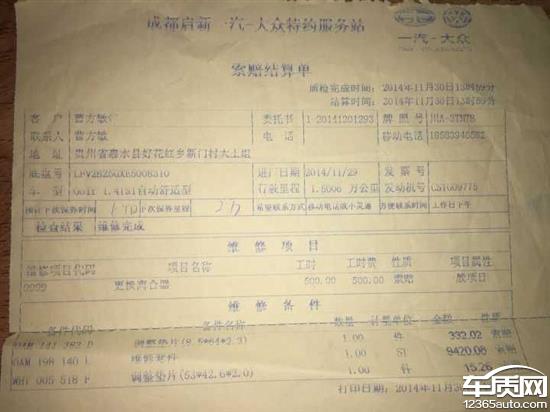 成都启新一汽-大众特约服务站
一汽-大众
索赔结算单
质检完成时间： 2014年11月30日13时59分
结算时间： 2014年11月30日13时59分
客 户 曹方敏 委托书 1-20141201293 牌照号
联系人 曹方敏 电 话 移动电话
地 址 贵州省惠水县好花红乡新门村大土组
底盘号 进厂日期 2014/11/29 发票号
车 型 Golf 1.4TSI自动舒适型 行驶里程 1.5006 万公里 发动机号
预计下次保养时间 下次保养里程 希望联系方式 移动电话或小灵通 方便联系时间 工作日下午
检查结果 维修完成
维 修 项 目
维修项目代码 项目名称 工时 工时费 性质 项目属性
9999 更换离合器 500.00 500.00 索赔
维 修 备 件
备件代码 备件名称 数量 计量单位 金额 性质
调整垫片 1.00 件 332.02 索赔
0AM 198 140 L 维修套件 1.00 ST 9420.08 索赔
WHT 005 518 F 调整垫片(53*42.6*2.0) 1.00 件 15.26
打印日期：2014年11月30
车质网
www.12365auto.com